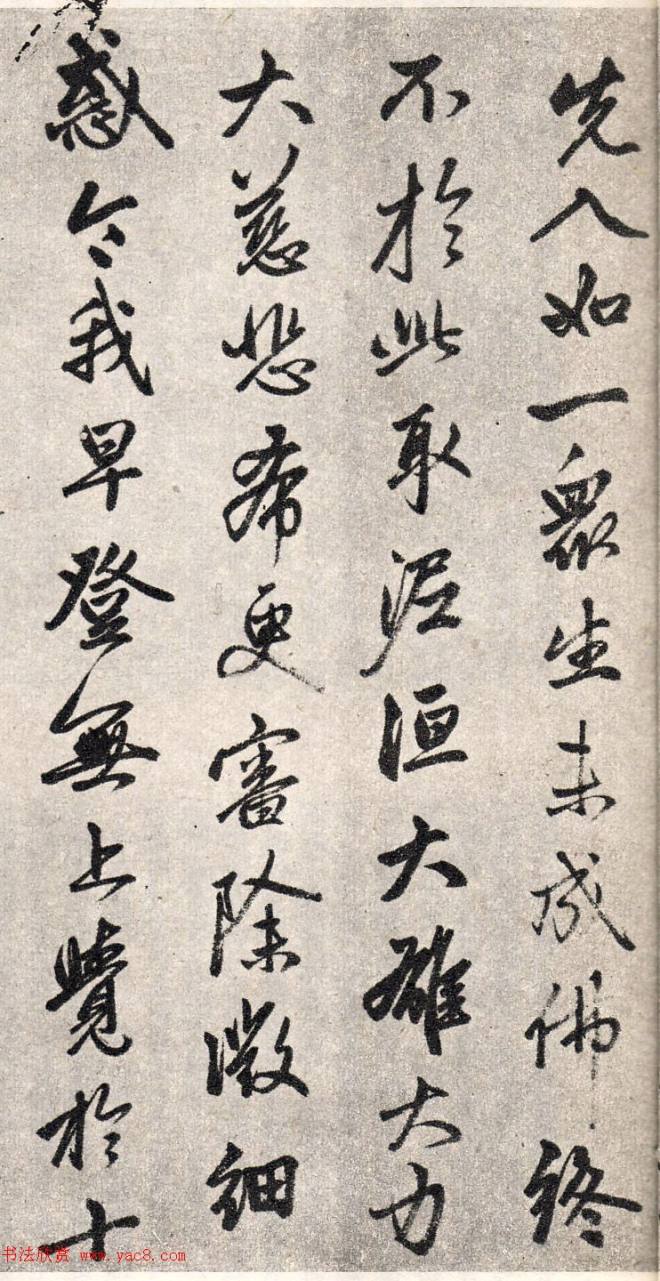 先入如一眾生未成佛終
不於此取泥洹大雄大力
大慈悲希更審除微細
惑令我早登無上覺於十
书法欣赏 www.yac8.com